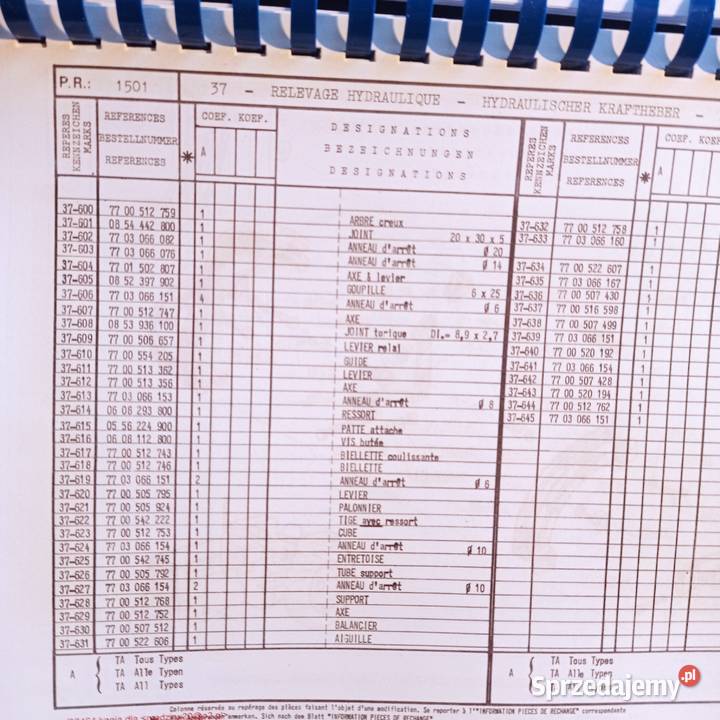 P.R.: 1501 37 - RELEVAGE HYDRAULIQUE - HYDRAULISCHER KRAFTHEBER -
REPERES
KENNZEICHEN
MARKS
REFERENCES
BESTELLNUMMER
REFERENCES
*
COEF. KOEF.
A
DESIGNATIONS
BEZEICHNUNGEN
DESIGNATIONS
37-600 77 00 512 759 1 ARBRE creux
37-601 08 54 442 800 1 JOINT 20 x 30 x 5
37-602 77 03 066 082 1 ANNEAU d'arrêt Ø 20
37-603 77 03 066 076 1 ANNEAU d'arrêt Ø 14
37-604 77 01 502 807 1 AXE à levier
37-605 08 52 397 902 1 GOUPILLE 6 x 25
37-606 77 03 066 151 4 ANNEAU d'arrêt Ø 6
37-607 77 00 512 747 1 AXE
37-608 08 53 936 100 1 JOINT torique DI.= 8,9 x 2,7
37-609 77 00 506 657 1 LEVIER relai
37-610 77 00 554 205 1 GUIDE
37-611 77 00 513 362 1 LEVIER
37-612 77 00 513 356 1 AXE
37-613 77 03 066 153 1 ANNEAU d'arrêt Ø 8
37-614 06 08 293 800 1 RESSORT
37-615 05 56 224 900 1 PATTE attache
37-616 06 08 112 800 1 VIS butée
37-617 77 00 512 743 1 BIELLETTE coulissante
37-618 77 00 512 746 1 BIELLETTE
37-619 77 03 066 151 2 ANNEAU d'arrêt Ø 6
37-620 77 00 505 795 1 LEVIER
37-621 77 00 505 924 1 PALONNIER
37-622 77 00 542 222 1 TIGE avec ressort
37-623 77 00 512 753 1 CUBE
37-624 77 03 066 154 1 ANNEAU d'arrêt Ø 10
37-625 77 00 542 745 1 ENTRETOISE
37-626 77 00 505 792 1 TUBE support
37-627 77 03 066 154 2 ANNEAU d'arrêt Ø 10
37-628 77 00 512 768 1 SUPPORT
37-629 77 00 512 752 1 AXE
37-630 77 00 507 512 1 BALANCIER
37-631 77 00 522 606 1 AIGUILLE
A { TA Tous Types
TA Alle Typen
TA All Types
REPERES
KENNZEICHEN
MARKS
REFERENCES
BESTELLNUMMER
REFERENCES
*
COEF. KOEF
A
37-632 77 00 512 758 1
37-633 77 03 066 160 1
37-634 77 00 522 607 1
37-635 77 03 066 167 1
37-636 77 00 507 430 1
37-637 77 00 516 598 1
37-638 77 00 507 499 1
37-639 77 03 066 151 1
37-640 77 00 520 192 1
37-641 77 03 066 154 1
37-642 77 00 507 428 1
37-643 77 00 520 194 1
37-644 77 00 512 762 1
37-645 77 03 066 151 1
A { TA Tous Types
TA Alle Typen
TA All Types
Colonne réservée au repérage des pièces faisant l'objet d'une modification. Se reporter à l'"INFORMATION PIECES DE RECHANGE" correspondante
anmerken. Sich nach dem Blatt "INFORMATION PIECES DE RECHANGE"
Sprzedajemy.pl